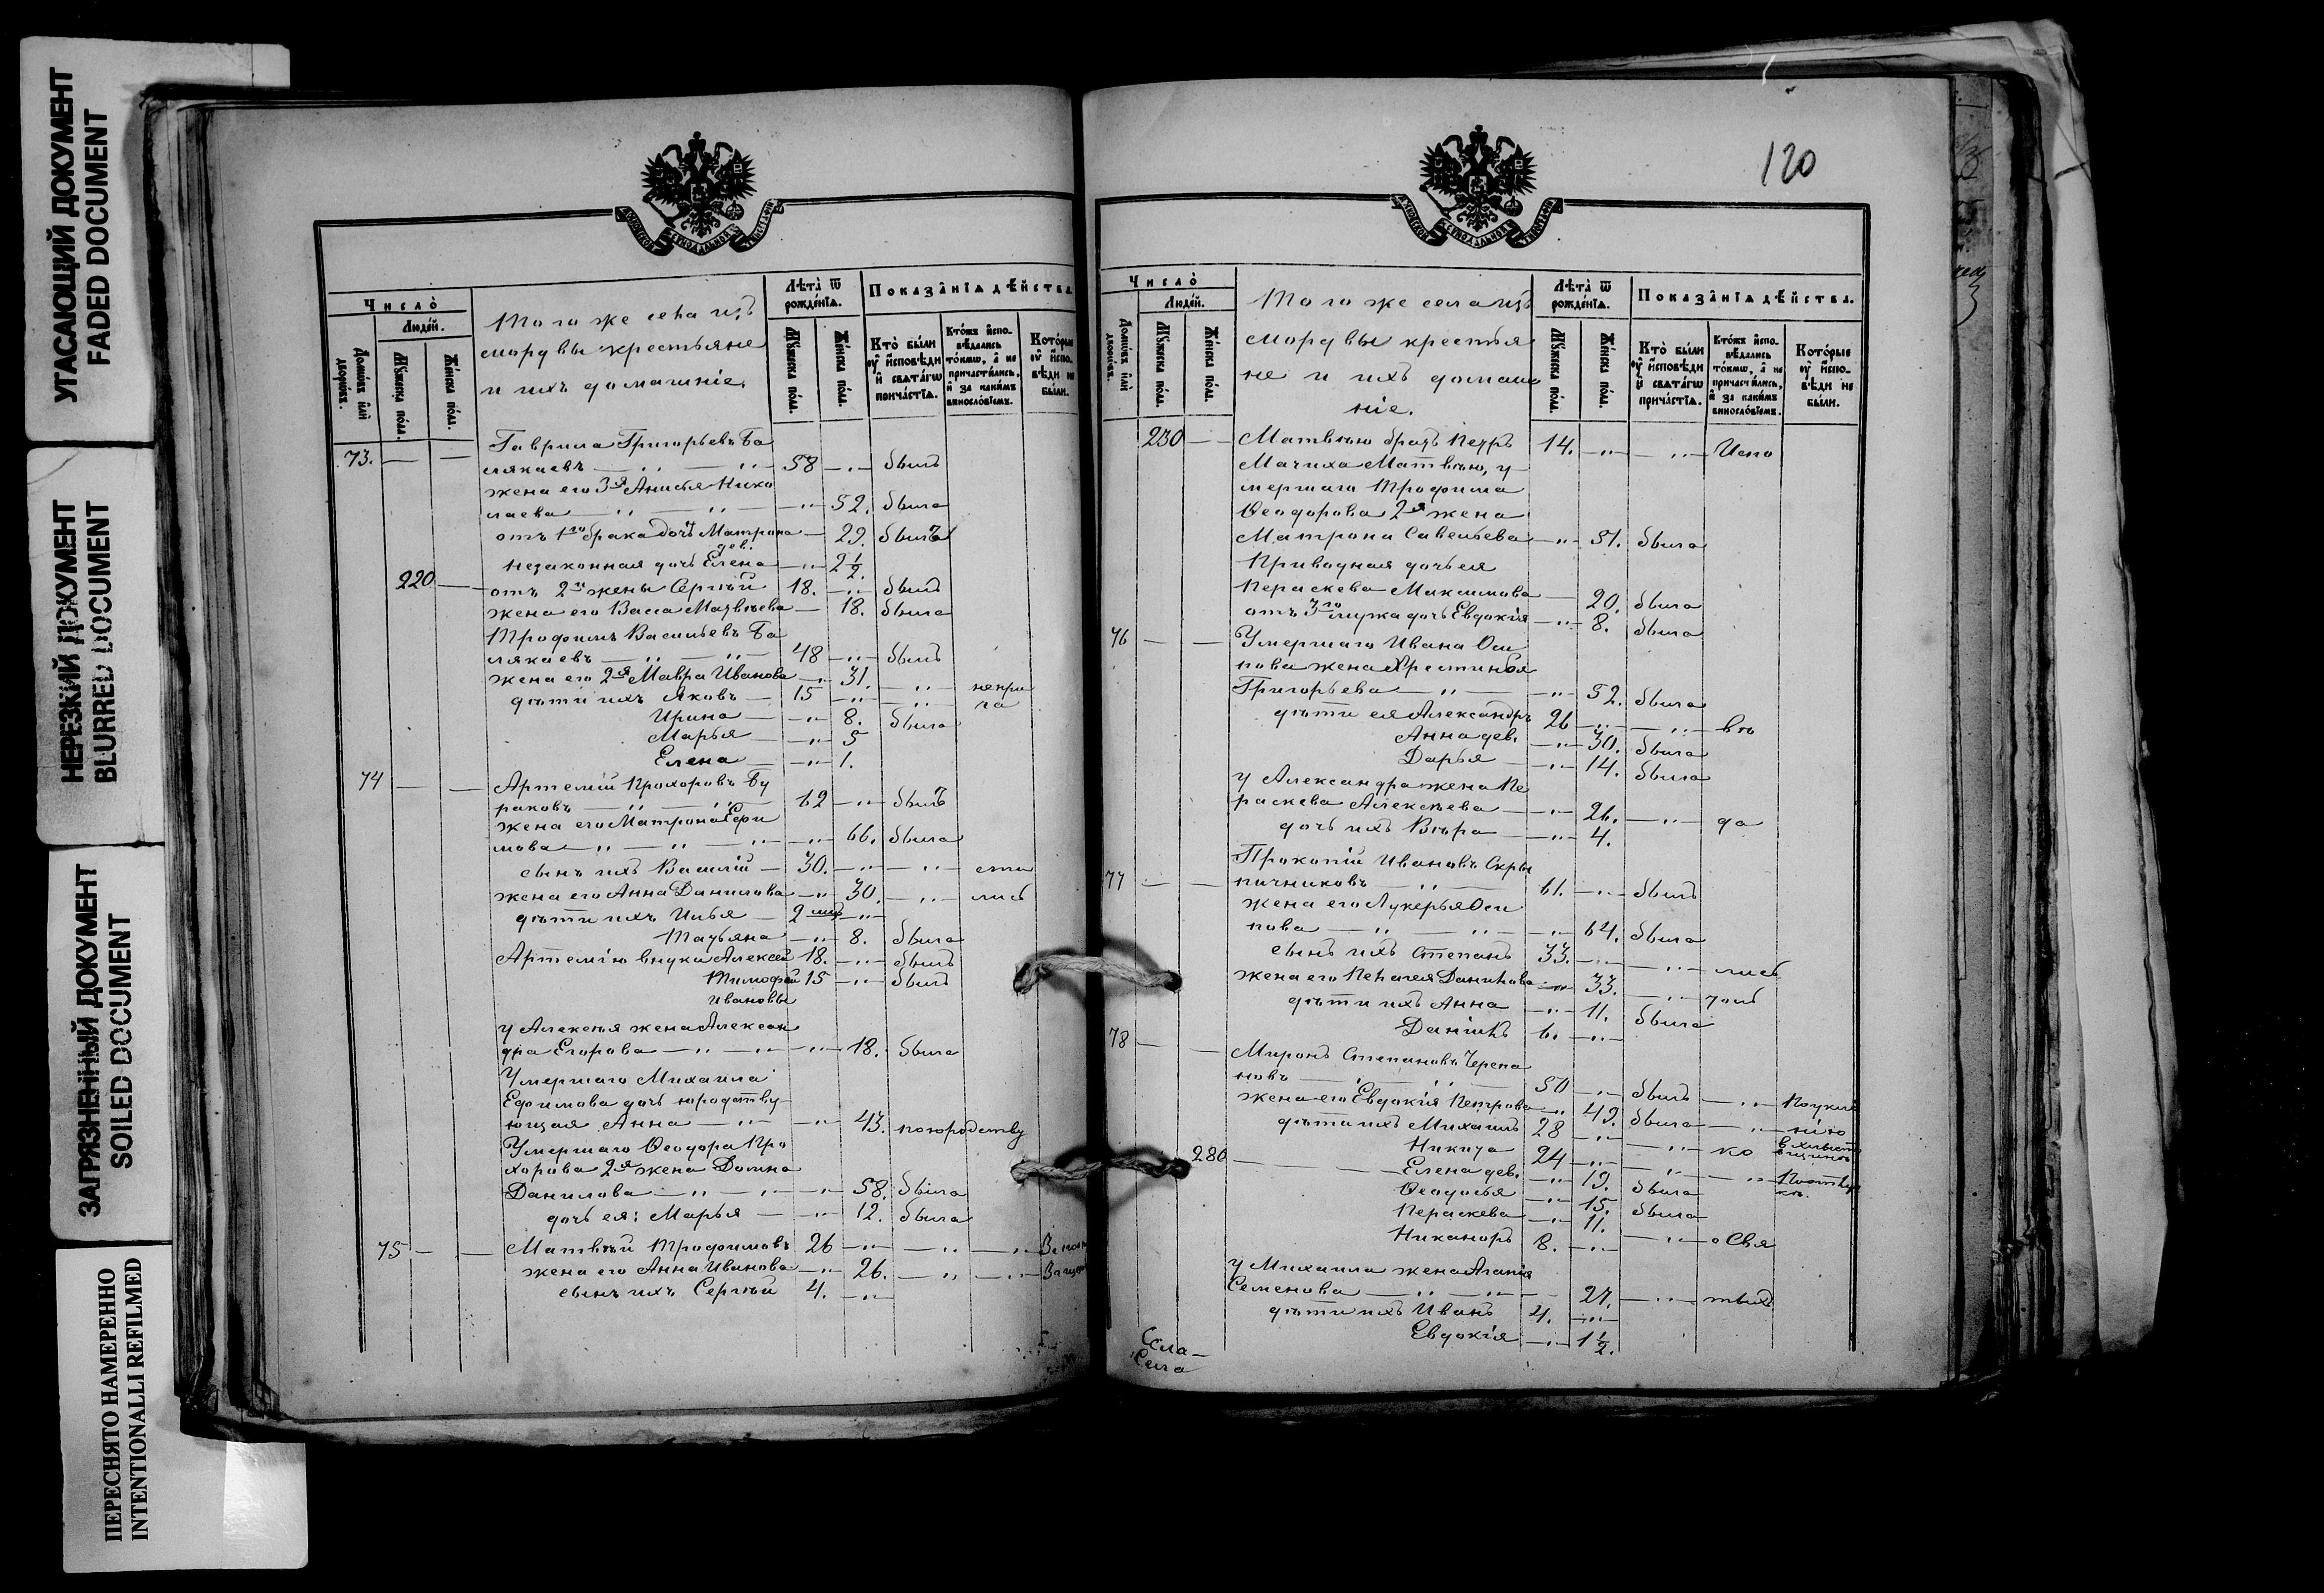 УГАСАЮЩИЙ ДОКУМЕНТ
FADED DOCUMENT
НЕРЕЗКИЙ ДОКУМЕНТ
BLURRED DOCUMENT
ЗАГРЯЗНЕННЫЙ ДОКУМЕНТ
SOILED DOCUMENT
ПЕРЕСНЯТО НАМЕРЕННО
INTENTIONALLI REFILMED
Число̀
Людей.
Домовъ или дворовъ.
Мужеска полу.
Женска полу.
Того же села изъ
мордвы крестьяне
и ихъ домашніе.
Лѣта ѿ рожденія.
Мужеска полу.
Женска полу.
Показанія дѣйства
Кто были у исповѣди и святагω причастія.
Кто жъ исповѣдались токмω, а не причастились, и за какимъ винословіемъ.
Которые у исповѣди не были.
73. Гаврила Григорьевъ Ба
лякаевъ 58 былъ
жена его 3я Анисья Нико
лаева 52. была
отъ 1го брака дочь Матрона 29. была
дев.
незаконная дочь Елена 2 1/2.
220 отъ 2й жены Сергѣй 18. былъ
жена его Васса Матвѣева 18. была
Трофимъ Васильевъ Ба
лякаевъ 48 былъ
жена его 2я Мавра Иванова 31. непри
дѣти ихъ Яковъ 15 ча
Ирина 8. была
Марья 5
Елена 1.
74 Артемій Прохоровъ Бу
раковъ 62 былъ
жена его Матрона Ефи
мова 66. была
сынъ ихъ Василій 30. сти
жена его Анна Данилова 30. лись
дѣти ихъ Илья 2
Татьяна 8. была
Артемію внуки Алексѣй 18. былъ
Тимофей 15 былъ
Ивановы
у Алексѣя жена Алексан
дра Егорова 18. была
Умершаго Михаила
Ефимова дочь юродству
ющая Анна 43. по юродству
Умершаго Ѳеодора Про
хорова 2я жена Домна
Данилова 58. была
дочь ея: Марья 12. была
75 Матвѣй Трофимовъ 26
жена его Анна Иванова 26.
сынъ ихъ Сергѣй 4.
120
Число̀
Людей.
Домовъ или дворовъ.
Мужеска полу.
Женска полу.
Того же села изъ
мордвы крестья
не и ихъ домаш
ніе.
Лѣта ѿ рожденія.
Мужеска полу.
Женска полу.
Показанія дѣйства.
Кто были у исповѣди и святагω причастія.
Кто жъ исповѣдались токмω, а не причастились, и за какимъ винословіемъ.
Которые у исповѣди не были.
230 Матвѣю братъ Петръ 14. Испо
Мачиха Матвѣю, у
мершаго Трофима
Ѳеодорова 2я жена
Матрона Савельева 51. была
Приводная дочь ея
Пераскева Максимова 20. была
отъ 3го мужа дочь Евдокія 8. была
76 Умершаго Ивана Оси
пова жена Христинья
Григорьева 52. была
дѣти ея Александръ 26 вѣ
Анна дев. 30. была
Дарья 14. была
у Александра жена Пе
раскева Алексѣева 26. да
дочь ихъ Вѣра 4.
77 Прокопій Ивановъ Скры
пичниковъ 61. былъ
жена его Лукерья Оси
пова 64. была
сынъ ихъ Степанъ 33. лись
жена его Пелагея Данилова 33.
дѣти ихъ Анна 11. была
Даніилъ 6.
78 Миронъ Степановъ Черепа
новъ 50 былъ
жена его Евдокія Петрова 49. была
дѣти ихъ Михаилъ 28
Никита 24 ко
280 Елена дев. 19. была
Ѳеодосья 15. была
Пераскева 11.
Никаноръ 8. о Свя
у Михаила жена Агапія
Семенова 27. тыхъ
дѣти ихъ Иванъ 4.
Евдокія 1 1/2.
Села